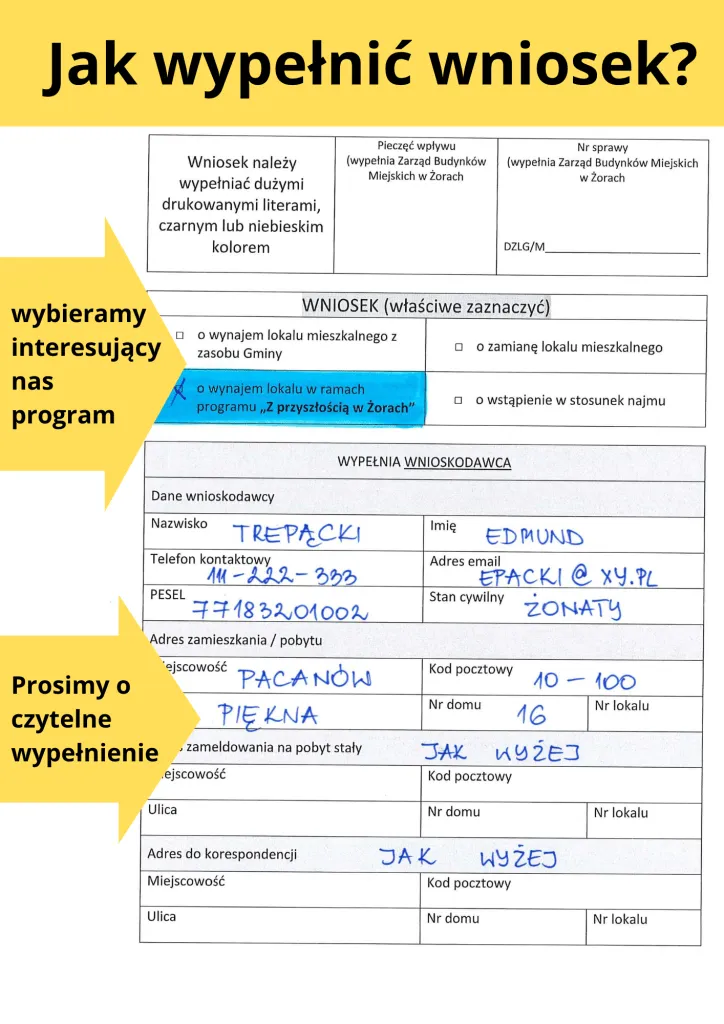 Jak wypełnić wniosek?
Wniosek należy
wypełniać dużymi
drukowanymi literami,
czarnym lub niebieskim
kolorem
Pieczęć wpływu
(wypełnia Zarząd Budynków
Miejskich w Żorach
Nr sprawy
(wypełnia Zarząd Budynków Miejskich
w Żorach
DZLG/M
wybieramy
interesujący
nas
program
WNIOSEK (właściwe zaznaczyć)
o wynajem lokalu mieszkalnego z
zasobu Gminy
o zamianę lokalu mieszkalnego
o wynajem lokalu w ramach
programu „Z przyszłością w Żorach"
o wstąpienie w stosunek najmu
WYPEŁNIA WNIOSKODAWCA
Dane wnioskodawcy
Nazwisko TREPĄCKI
Imię EDMUND
Telefon kontaktowy 111-222-333
Adres email EPACKI@XY.PL
PESEL 77183201002
Stan cywilny ŻONATY
Adres zamieszkania / pobytu
Prosimy o
czytelne
wypełnienie
ejscowość PACANÓW
Kod pocztowy 10-100
PIĘKNA
Nr domu 16
Nr lokalu
zameldowania na pobyt stały JAK WYŻEJ
ejscowość
Kod pocztowy
Ulica
Nr domu
Nr lokalu
Adres do korespondencji JAK WYŻEJ
Miejscowość
Kod pocztowy
Ulica
Nr domu
Nr lokalu